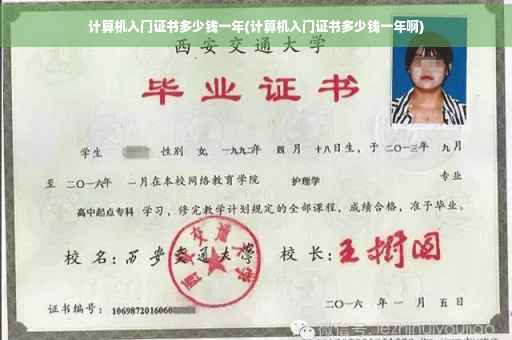 计算机入门证书多少钱一年(计算机入门证书多少钱一年啊)
西安交通大学
毕业证书
学生 性别 女, 一九九二年 四 月 十八日生, 于 二〇一三年 九月
至 二〇一六年 一月在本校网络教育学院 护理学 专业
高中起点专科 学习, 修完教学计划规定的全部课程, 成绩合格, 准予毕业。
校 名: 西安交通大学 校 长: 王树国
证书编号: 1069872016060
二〇一六 年 一 月 五 日
微信号: jiezhinuiyoujiao